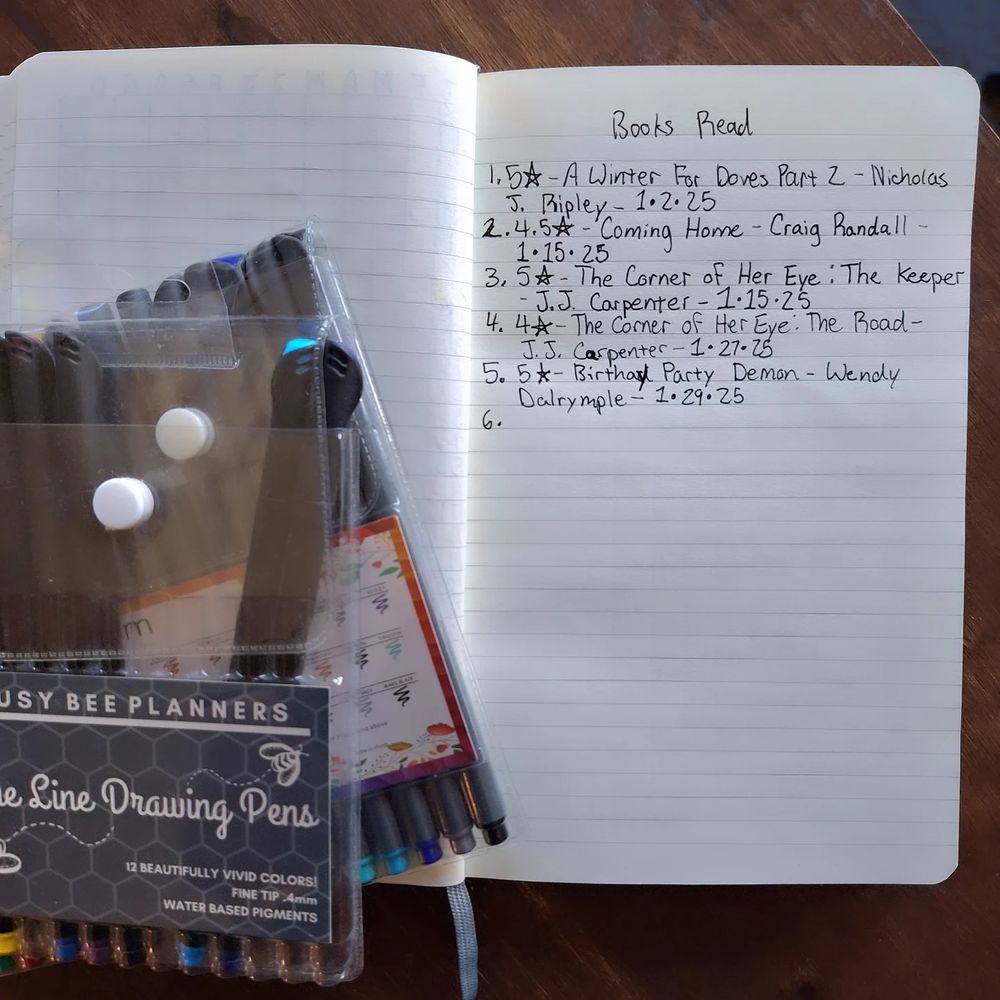 Books Read
1. 5☆ - A Winter For Doves Part 2 - Nicholas
J. Ripley - 1•2•25
2. 4.5☆ - Coming Home - Craig Randall -
1•15•25
3. 5☆ - The Corner of Her Eye: The Keeper
- J.J. Carpenter - 1•15•25
4. 4☆ - The Corner of Her Eye: The Road -
J.J. Carpenter - 1•27•25
5. 5☆ - Birthay Party Demon - Wendy
Dalrymple - 1•29•25
6.
USY BEE PLANNERS
ne Line Drawing Pens
12 BEAUTIFULLY VIVID COLORS!
FINE TIP .4mm
WATER BASED PIGMENTS